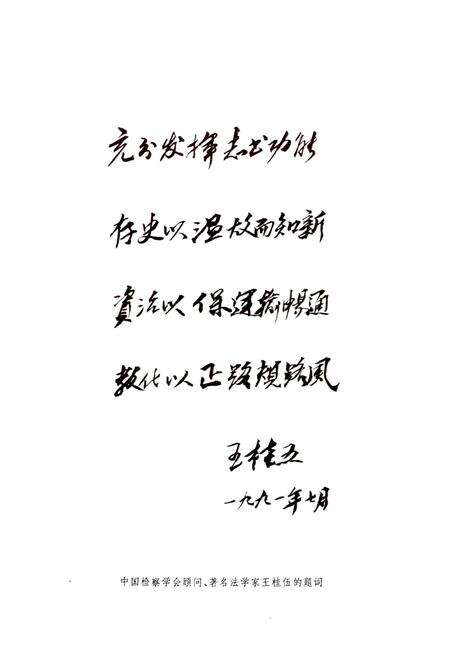 充分发挥志书功能
存史以温故而知新
資治以保運輸暢通
教化以正路規路風
王桂五
一九九一年七月
中国检察学会顾问、著名法学家王桂伍的题词